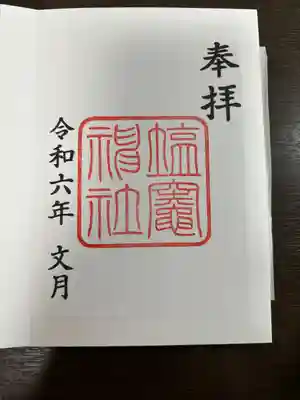 奉拝
塩竈
神社
令和六年 文月